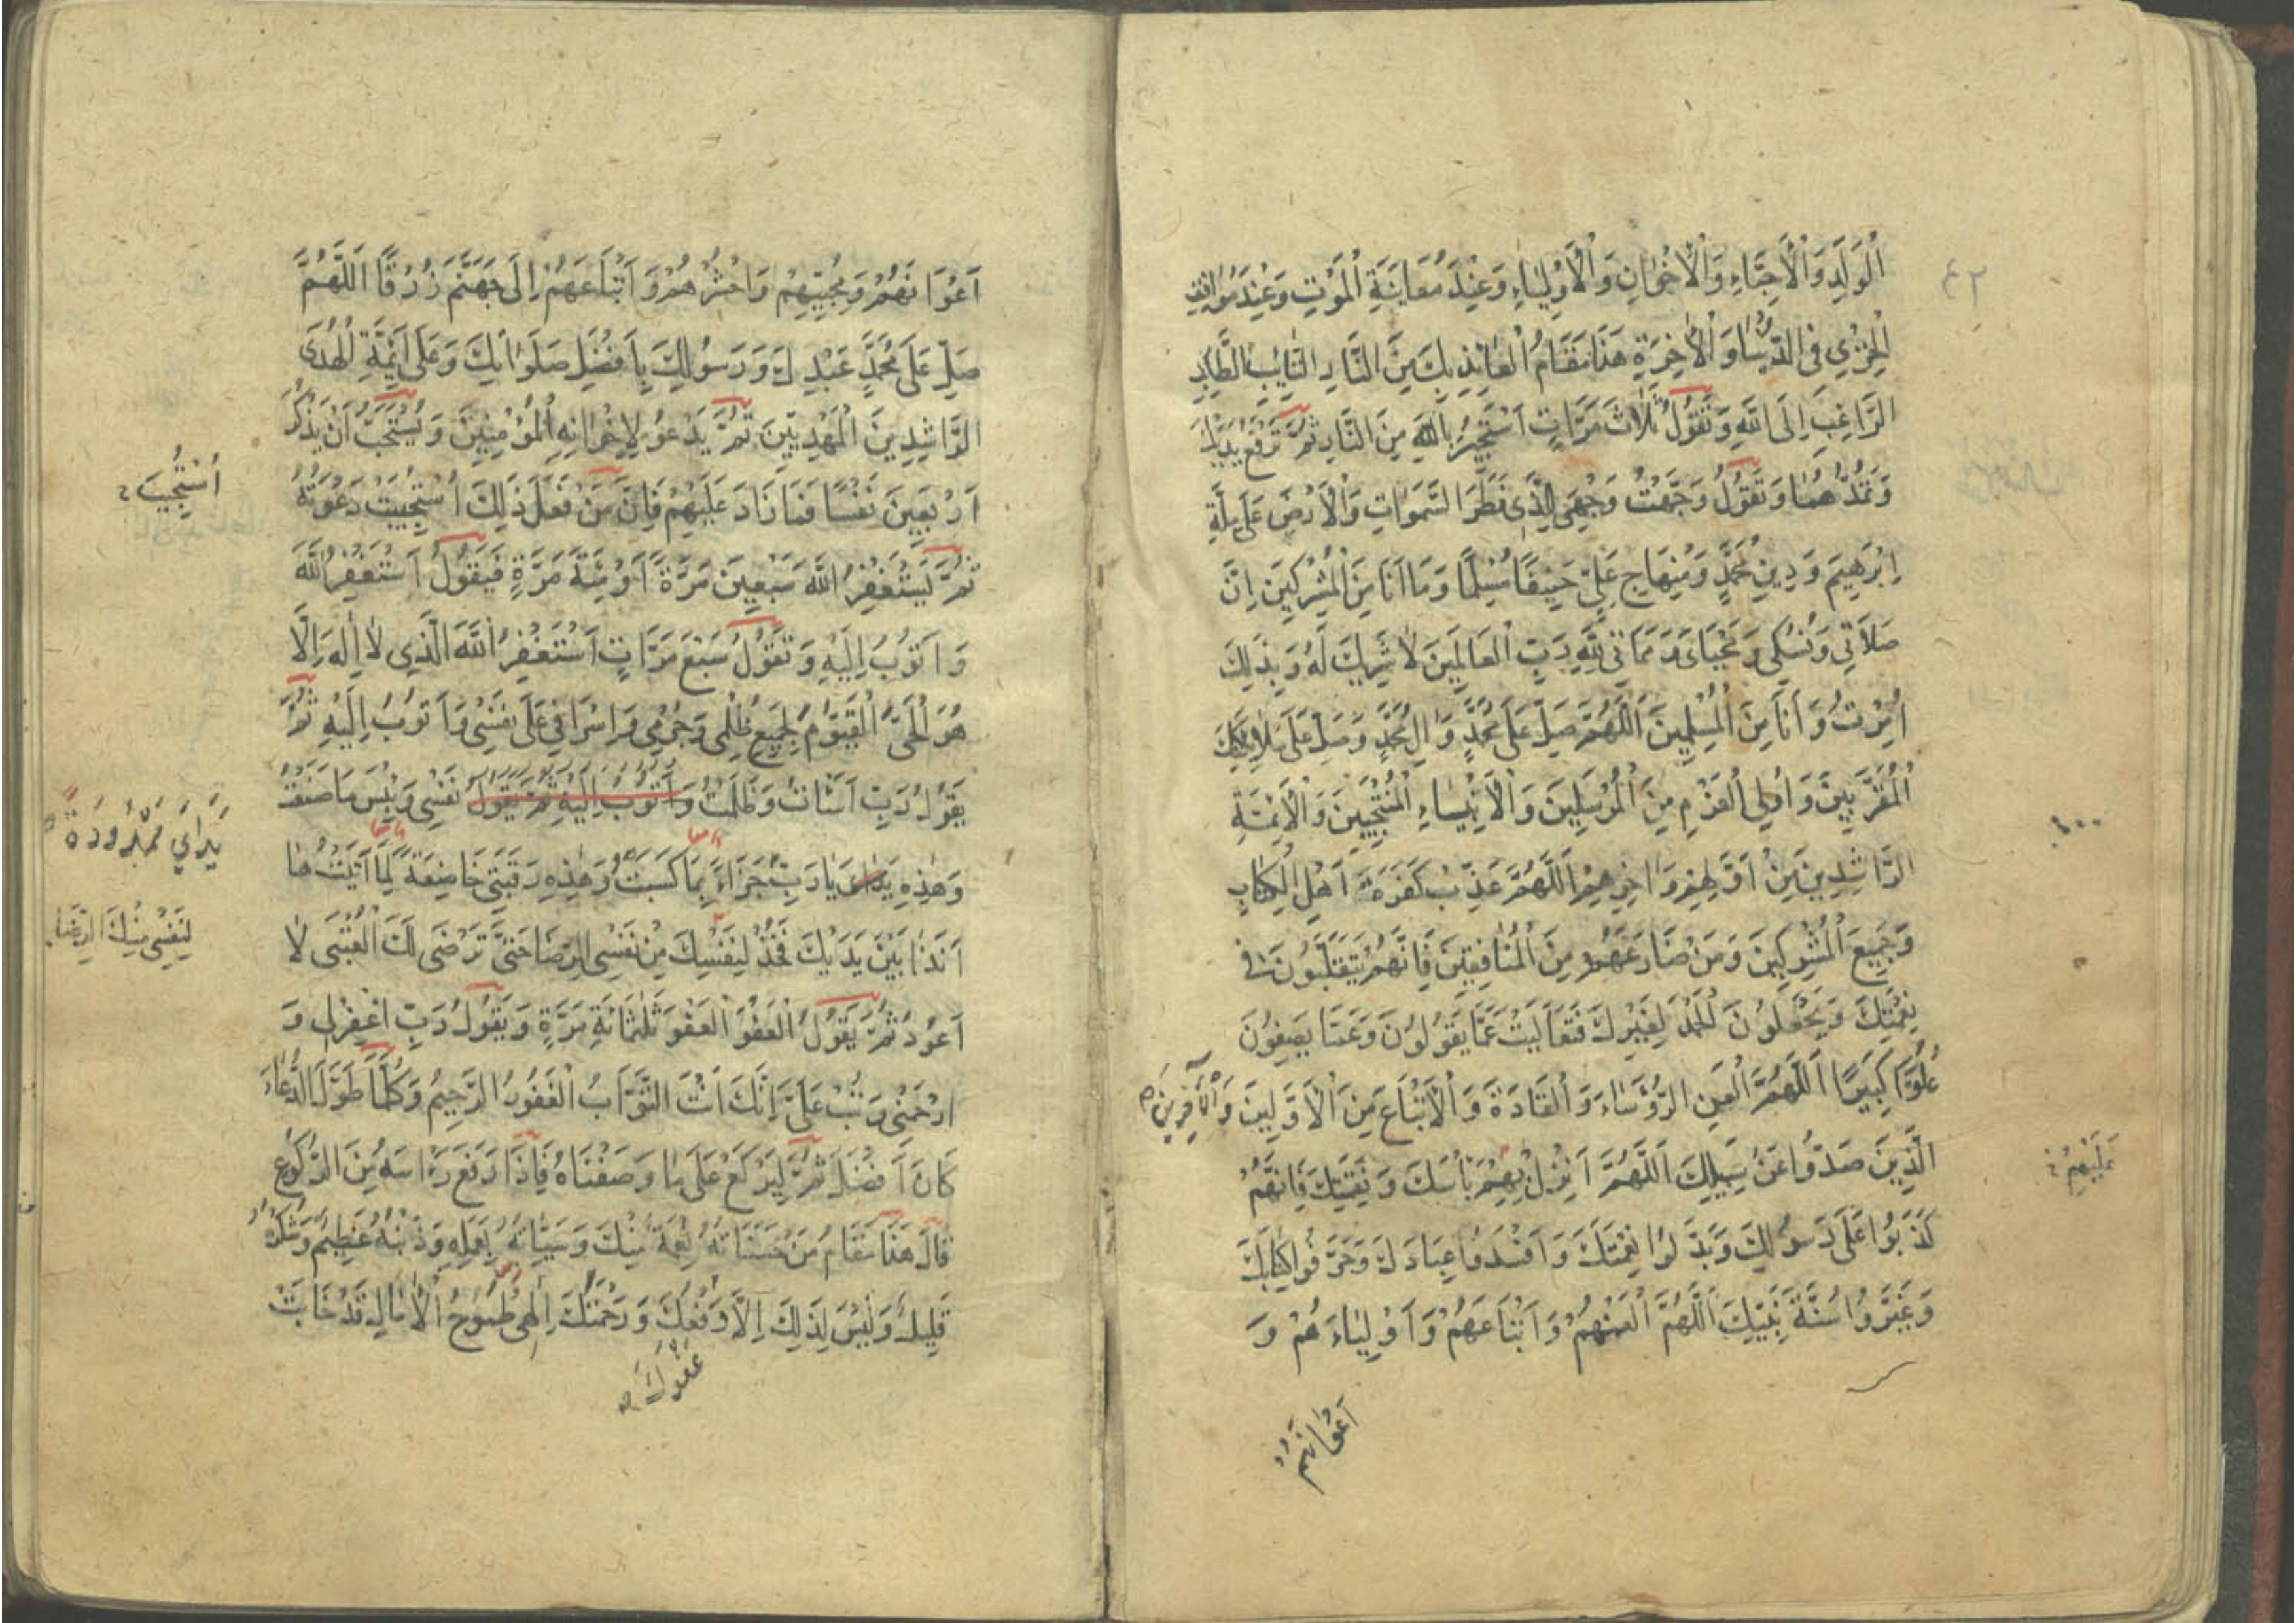 ٤٢
اَلْوَلَدِ وَالْاَحِبَّاءِ وَالْاِخْوَانِ وَالْاَوْلِيَاءِ وَعِنْدَ مُعَايَنَةِ الْمَوْتِ وَعِنْدَ مَوَاقِفِ
الْخِزْيِ فِي الدُّنْيَا وَالْاٰخِرَةِ هَذَا مَقَامُ الْعَائِذِ بِكَ مِنَ النَّارِ التَّايِبِ الطَّالِبِ
الرَّاغِبِ اِلَى اللّٰهِ وَتَقُولُ ثَلَاثَ مَرَّاتٍ اَسْتَجِيرُ بِاللّٰهِ مِنَ النَّارِ ثُمَّ تَرْفَعُ يَدَيْكَ
وَتَمُدُّهُمَا وَتَقُولُ وَجَّهْتُ وَجْهِيَ لِلَّذِي فَطَرَ السَّمٰوَاتِ وَالْاَرْضَ عَلَى مِلَّةِ
اِبْرٰهِيمَ وَدِينِ مُحَمَّدٍ وَمِنْهَاجِ عَلِيٍّ حَنِيفًا مُسْلِمًا وَمَا اَنَا مِنَ الْمُشْرِكِينَ اِنَّ
صَلَاتِي وَنُسُكِي وَمَحْيَايَ وَمَمَاتِي لِلّٰهِ رَبِّ الْعَالَمِينَ لَا شَرِيكَ لَهُ وَبِذَلِكَ
اُمِرْتُ وَاَنَا مِنَ الْمُسْلِمِينَ اَللّٰهُمَّ صَلِّ عَلَى مُحَمَّدٍ وَاٰلِ مُحَمَّدٍ وَصَلِّ عَلَى مَلَائِكَتِكَ
الْمُقَرَّبِينَ وَاُولِي الْعَزْمِ مِنَ الْمُرْسَلِينَ وَالْاَنْبِيَاءِ الْمُنْتَجَبِينَ وَالْاَئِمَّةِ
الرَّاشِدِينَ مِنْ اَوَّلِهِمْ وَاٰخِرِهِمْ اَللّٰهُمَّ عَذِّبْ كَفَرَةَ اَهْلِ الْكِتَابِ
وَجَمِيعَ الْمُشْرِكِينَ وَمَنْ ضَارَعَهُمْ مِنَ الْمُنَافِقِينَ فَاِنَّهُمْ يَتَقَلَّبُونَ فِي
نِعْمَتِكَ وَيَجْعَلُونَ الْحَمْدَ لِغَيْرِكَ فَتَعَالَيْتَ عَمَّا يَقُولُونَ وَعَمَّا يَصِفُونَ
عُلُوًّا كَبِيرًا اَللّٰهُمَّ الْعَنِ الرُّؤَسَاءَ وَالْقَادَةَ وَالْاَتْبَاعَ مِنَ الْاَوَّلِينَ وَالْاٰخِرِينَ
الَّذِينَ صَدُّوا عَنْ سَبِيلِكَ اَللّٰهُمَّ اَنْزِلْ بِهِمْ بَأْسَكَ وَنِقْمَتَكَ فَاِنَّهُمْ
عَلَيْهِمْ
كَذَبُوا عَلَى رَسُولِكَ وَبَدَّلُوا نِعْمَتَكَ وَاَفْسَدُوا عِبَادَكَ وَحَرَّفُوا كِتَابَكَ
وَغَيَّرُوا سُنَّةَ نَبِيِّكَ اَللّٰهُمَّ الْعَنْهُمْ وَاَتْبَاعَهُمْ وَاَوْلِيَاءَهُمْ وَ
اَعْوَانَهُمْ
اَعْوَانَهُمْ وَمُحِبِّيهِمْ وَاحْشُرْهُمْ وَاَتْبَاعَهُمْ اِلَى جَهَنَّمَ زُرْقًا اَللّٰهُمَّ
صَلِّ عَلَى مُحَمَّدٍ عَبْدِكَ وَرَسُولِكَ بِاَفْضَلِ صَلَوَاتِكَ وَعَلَى اَئِمَّةِ الْهُدَى
الرَّاشِدِينَ الْمَهْدِيِّينَ ثُمَّ يَدْعُو لِاِخْوَانِهِ الْمُؤْمِنِينَ وَيُسْتَحَبُّ اَنْ يَذْكُرَ
اَرْبَعِينَ نَفْسًا فَمَا زَادَ عَلَيْهِمْ فَاِنَّ مَنْ فَعَلَ ذٰلِكَ اسْتُجِيبَتْ دَعْوَتُهُ
اُسْتُجِيبَ
ثُمَّ يَسْتَغْفِرُ اللّٰهَ سَبْعِينَ مَرَّةً اَوْ مِئَةَ مَرَّةٍ فَيَقُولُ اَسْتَغْفِرُ اللّٰهَ
وَاَتُوبُ اِلَيْهِ وَتَقُولُ سَبْعَ مَرَّاتٍ اَسْتَغْفِرُ اللّٰهَ الَّذِي لَا اِلٰهَ اِلَّا
هُوَ الْحَيُّ الْقَيُّومُ لِجَمِيعِ ظُلْمِي وَجُرْمِي وَاِسْرَافِي عَلَى نَفْسِي وَاَتُوبُ اِلَيْهِ ثُمَّ
يَقُولُ رَبِّ اَسَأْتُ وَظَلَمْتُ وَاَتُوبُ اِلَيْهِ ثُمَّ يَقُولُ نَفْسِي وَبِئْسَ مَا صَنَعْتُ
وَهٰذِهِ يَدَايَ يَا رَبِّ جَزَاءً بِمَا كَسَبَتْ وَهٰذِهِ رَقَبَتِي خَاضِعَةً لِمَا اَتَيْتُ هَا
اَنَا ذَا بَيْنَ يَدَيْكَ فَخُذْ لِنَفْسِكَ مِنْ نَفْسِي الرِّضَا حَتَّى تَرْضَى لَكَ الْعُتْبَى لَا
لِنَفْسِي مِنْكَ الرِّضَا
اَعُودُ ثُمَّ يَقُولُ الْعَفْوَ الْعَفْوَ ثَلٰثَمِائَةِ مَرَّةٍ وَيَقُولُ رَبِّ اغْفِرْ لِي وَ
ارْحَمْنِي وَتُبْ عَلَيَّ اِنَّكَ اَنْتَ التَّوَّابُ الْغَفُورُ الرَّحِيمُ وَكُلَّمَا طَوَّلَ الدُّعَاءَ
كَانَ اَفْضَلَ ثُمَّ لْيَرْكَعْ عَلَى مَا وَصَفْنَاهُ فَاِذَا رَفَعَ رَأْسَهُ مِنَ الرُّكُوعِ
قَالَ هَذَا مَقَامُ مَنْ حَسَنَاتُهُ نِعْمَةٌ مِنْكَ وَسَيِّئَاتُهُ بِعَمَلِهِ وَذَنْبُهُ عَظِيمٌ وَشُكْرُهُ
قَلِيلٌ وَلَيْسَ لِذٰلِكَ اِلَّا دَفْعُكَ وَرَحْمَتُكَ اِلٰهِي طُمُوحُ الْاٰمَالِ قَدْ خَابَتْ